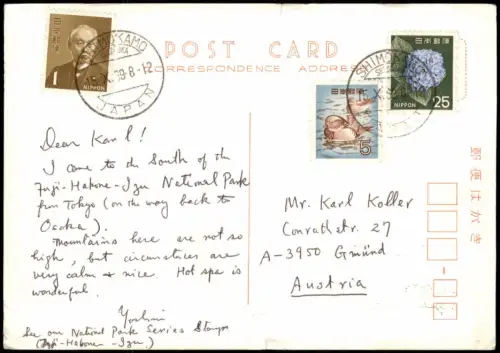 POST CARD
CORRESPONDENCE ADDRESS
日本郵便
1
NIPPON
SHIMOKAMO
X.69.8-12
JAPAN
5
日本郵便
NIPPON 25
郵便はがき
Dear Karl!
I came to the South of the
Fuji-Hakone-Izu National Park
from Tokyo (on the way back to
Osaka).
Mountains here are not so
high, but circumstices are
very calm & nice. Hot spa is
wonderful.
See our National Park Series Stamps
(Fuji-Hakone-Izu.)
Mr. Karl Koller
Conrathstr. 27
A-3950 Gmünd
Austria